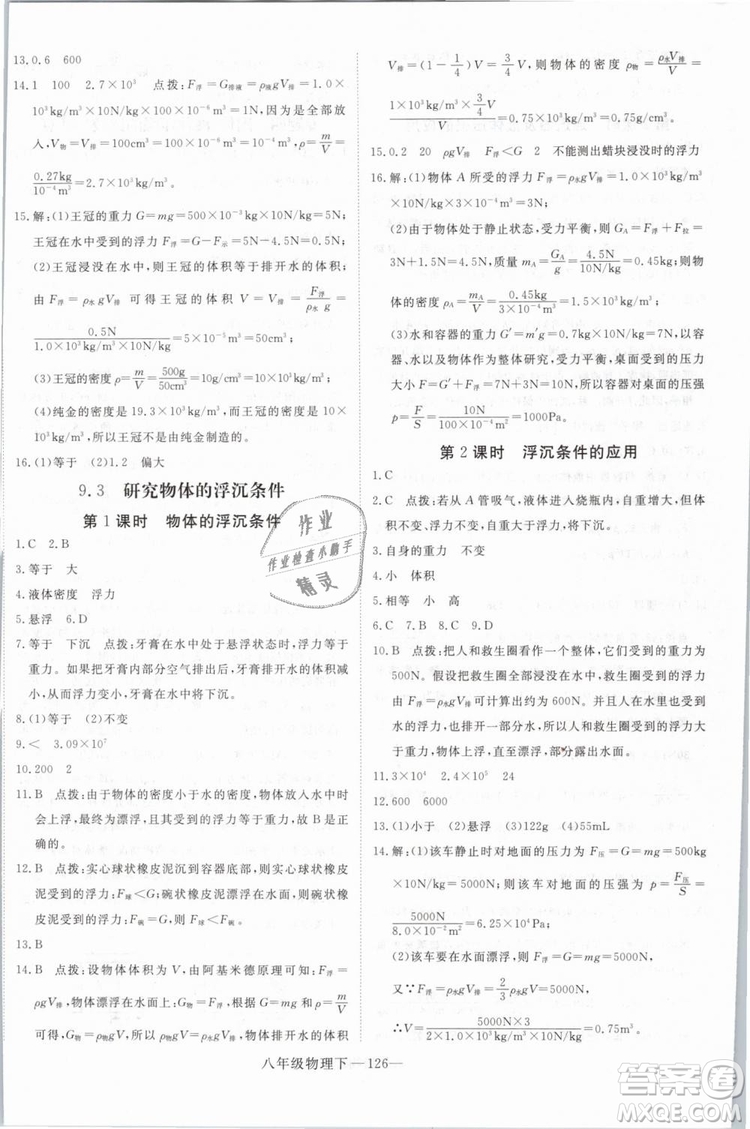 13.0.6　600
14.1　100　2.7×10³　点拨：F浮=G排液=ρ液gV排=1.0×
10³kg/m³×10N/kg×100×10⁻⁶m³=1N，因为是全部放
人，V物=V排=100cm³=100×10⁻⁶m³，ρ物=m/V=
0.27kg/(100×10⁻⁶m³)=2.7×10³kg/m³。
15.解：(1)王冠的重力G=mg=500×10⁻³kg×10N/kg=5N；
王冠在水中受到的浮力F浮=G-F示=5N-4.5N=0.5N。
(2)王冠浸没在水中，则王冠的体积等于排开水的体积；
由F浮=ρ水gV排可得王冠的体积V=V排=F浮/(ρ水g)=
0.5N/(1.0×10³kg/m³×10N/kg)=5×10⁻⁵m³=50cm³；
(3)王冠的密度ρ=m/V=500g/50cm³=10g/cm³=10×10³kg/m³；
(4)纯金的密度是19.3×10³kg/m³，王冠的密度是10×
10³kg/m³，所以王冠不是由纯金制造的。
16.(1)等于　(2)1.2　偏大
9.3　研究物体的浮沉条件
第1课时　物体的浮沉条件
1.C　2.B
3.等于　大
4.液体密度　浮力
5.悬浮　6.D
7.等于　下沉　点拨：牙膏在水中处于悬浮状态时，浮力等于
重力。如果把牙膏内部分空气排出后，牙膏排开水的体积减
小，从而受到的浮力减小，牙膏在水中将下沉。
8.(1)等于　(2)不变
9.<　3.09×10⁷
10.200　2
11.B　点拨：由于物体的密度小于水的密度，物体放入水中时
会上浮，最终为漂浮，此时受到的浮力等于重力，故B是正
确的。
12.B　点拨：实心球状橡皮泥沉到容器底部，则实心球状橡皮
泥受到的浮力F球<G；碗状橡皮泥漂浮在水面，则碗状橡
皮泥受到的浮力F碗=G，则F球<F碗。
13.B
14.B　点拨：设物体体积为V，由阿基米德原理可得：F浮=
ρgV排，物体漂浮在水面上：F浮=G=mg和ρ=m/V可得：
ρ水gV排=ρ物gV物，物体排开水的体积
V排=(1-1/4)V=3/4V，则物体的密度ρ物=ρ水V排/V=
1×10³kg/m³×3/4V/V=0.75×10³kg/m³=0.75g/cm³。
15.0.2　20　ρgV排　F浮<G　2　不能测出蜡块浸没时的浮力
16.解：(1)物体A所受的浮力F浮=ρ水gV排=1.0×10³kg/m³
×10N/kg×3×10⁻⁴m³=3N。
(2)由于物体处于静止状态，受力平衡，则G=F浮+F拉=
3N+1.5N=4.5N，质量mA=G/g=4.5N/10N/kg=0.45kg；则物
体的密度ρA=mA/V=0.45kg/(3×10⁻⁴m³)=1.5×10³kg/m³。
(3)水和容器的重力G′=m′g=1kg×10N/kg=10N；以容
器、水以及物体作为整体研究，受力平衡，桌面受到的压
力F=G′+G-F拉=10N，所以容器对桌面的压强
p=F/S=10N/(100×10⁻⁴m²)=1000Pa。
第2课时　浮沉条件的应用
1.C
2.C　点拨：若从A管吸气，液体进入烧瓶内，自重增大，但体
积不变、浮力不变，自重大于浮力，将下沉。
3.自身的重力　不变
4.小　体积
5.相等　小　高
6.C　7.B　8.C　9.D
10.C　点拨：把人和救生圈看作一个整体，它们受到的重力为
500N。假设把救生圈全部浸没在水中，人和救生圈受到的
浮力F浮=ρ水gV排可计算出约为600N。并且人和救生圈还
要浸入一部分水中，所以人和救生圈全部浸没的浮力大
于重力，物体上浮，直至漂浮，部分露出水面。
11.3×10⁴　2.4×10⁵　24
12.600　6000
13.(1)小于　(2)悬浮　(3)122g　(4)55mL
14.解：(1)该车静止时对地面的压力F压=G=mg=500kg
×10N/kg=5000N，该车对地面的压强为p=F压/S=
5000N/(8.0×10⁻²m²)=6.25×10⁴Pa；
(2)该车要在水面漂浮，F浮=G=5000N，
又∵F浮=ρ水gV排=2/3ρ水gV=5000N，
∴V=5000N×3/(2×1.0×10³kg/m³×10N/kg)=0.75m³。
八年级物理下—126—
作业
作业检查小助手
精灵
答案圈
MXQE.COM